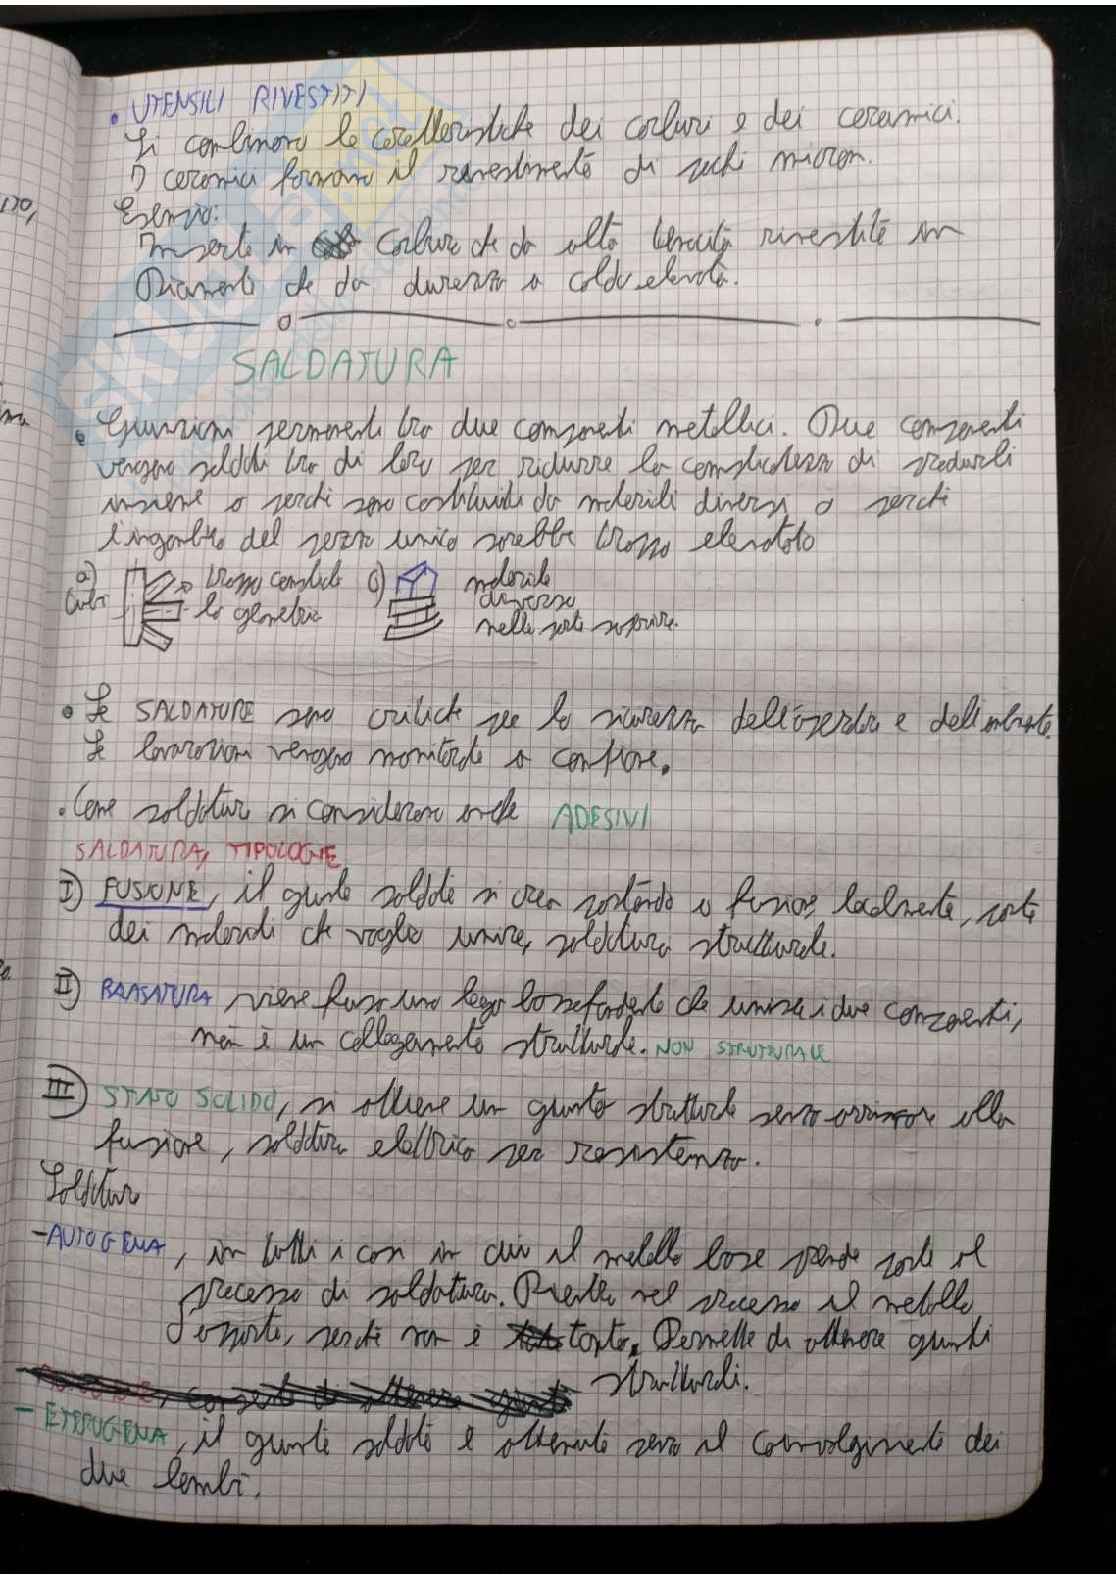 • UTENSILI RIVESTITI
Si combinano le caratteristiche dei carburi e dei ceramici.
I ceramici formano il rivestimento di pochi micron.
Esempio:
Inserto in carburo che da alta tenacità rivestito in
che da durezza a caldo elevata.
SALDATURA
• Giunzioni permanenti tra due componenti metallici. Due componenti
vengono saldati tra di loro per ridurre la complicatezza di produrli
insieme o perché sono costituiti da materiali diversi o perché
l'ingombro del pezzo unico sarebbe troppo elevato
a) troppo complicata
la geometria
materiale
diverso
nella parte superiore.
• Le SALDATURE sono critiche per la sicurezza dell'operatore e dell'ambiente.
Le lavorazioni vengono monitorate a
• Come saldature si considerano anche ADESIVI
SALDATURA, TIPOLOGIE
I) FUSIONE, il giunto saldato si crea portando a fusione, localmente, parte
dei materiali che voglio unire, saldatura strutturale.
II) BRASATURA viene fusa una lega bassofondente che unisce i due componenti,
non è un collegamento strutturale. NON STRUTTURALE
III) STATO SOLIDO, si ottiene un giunto strutturale senza arrivare alla
fusione, saldatura elettrica per resistenza.
Saldature
- AUTOGENA, in tutti i casi in cui il metallo base prende parte al
processo di saldatura. Rientra nel processo il metallo
d'apporto, perché non è Permette di ottenere giunti
strutturali.
- ETEROGENA, il giunto saldato è ottenuto senza il coinvolgimento dei
due lembi.